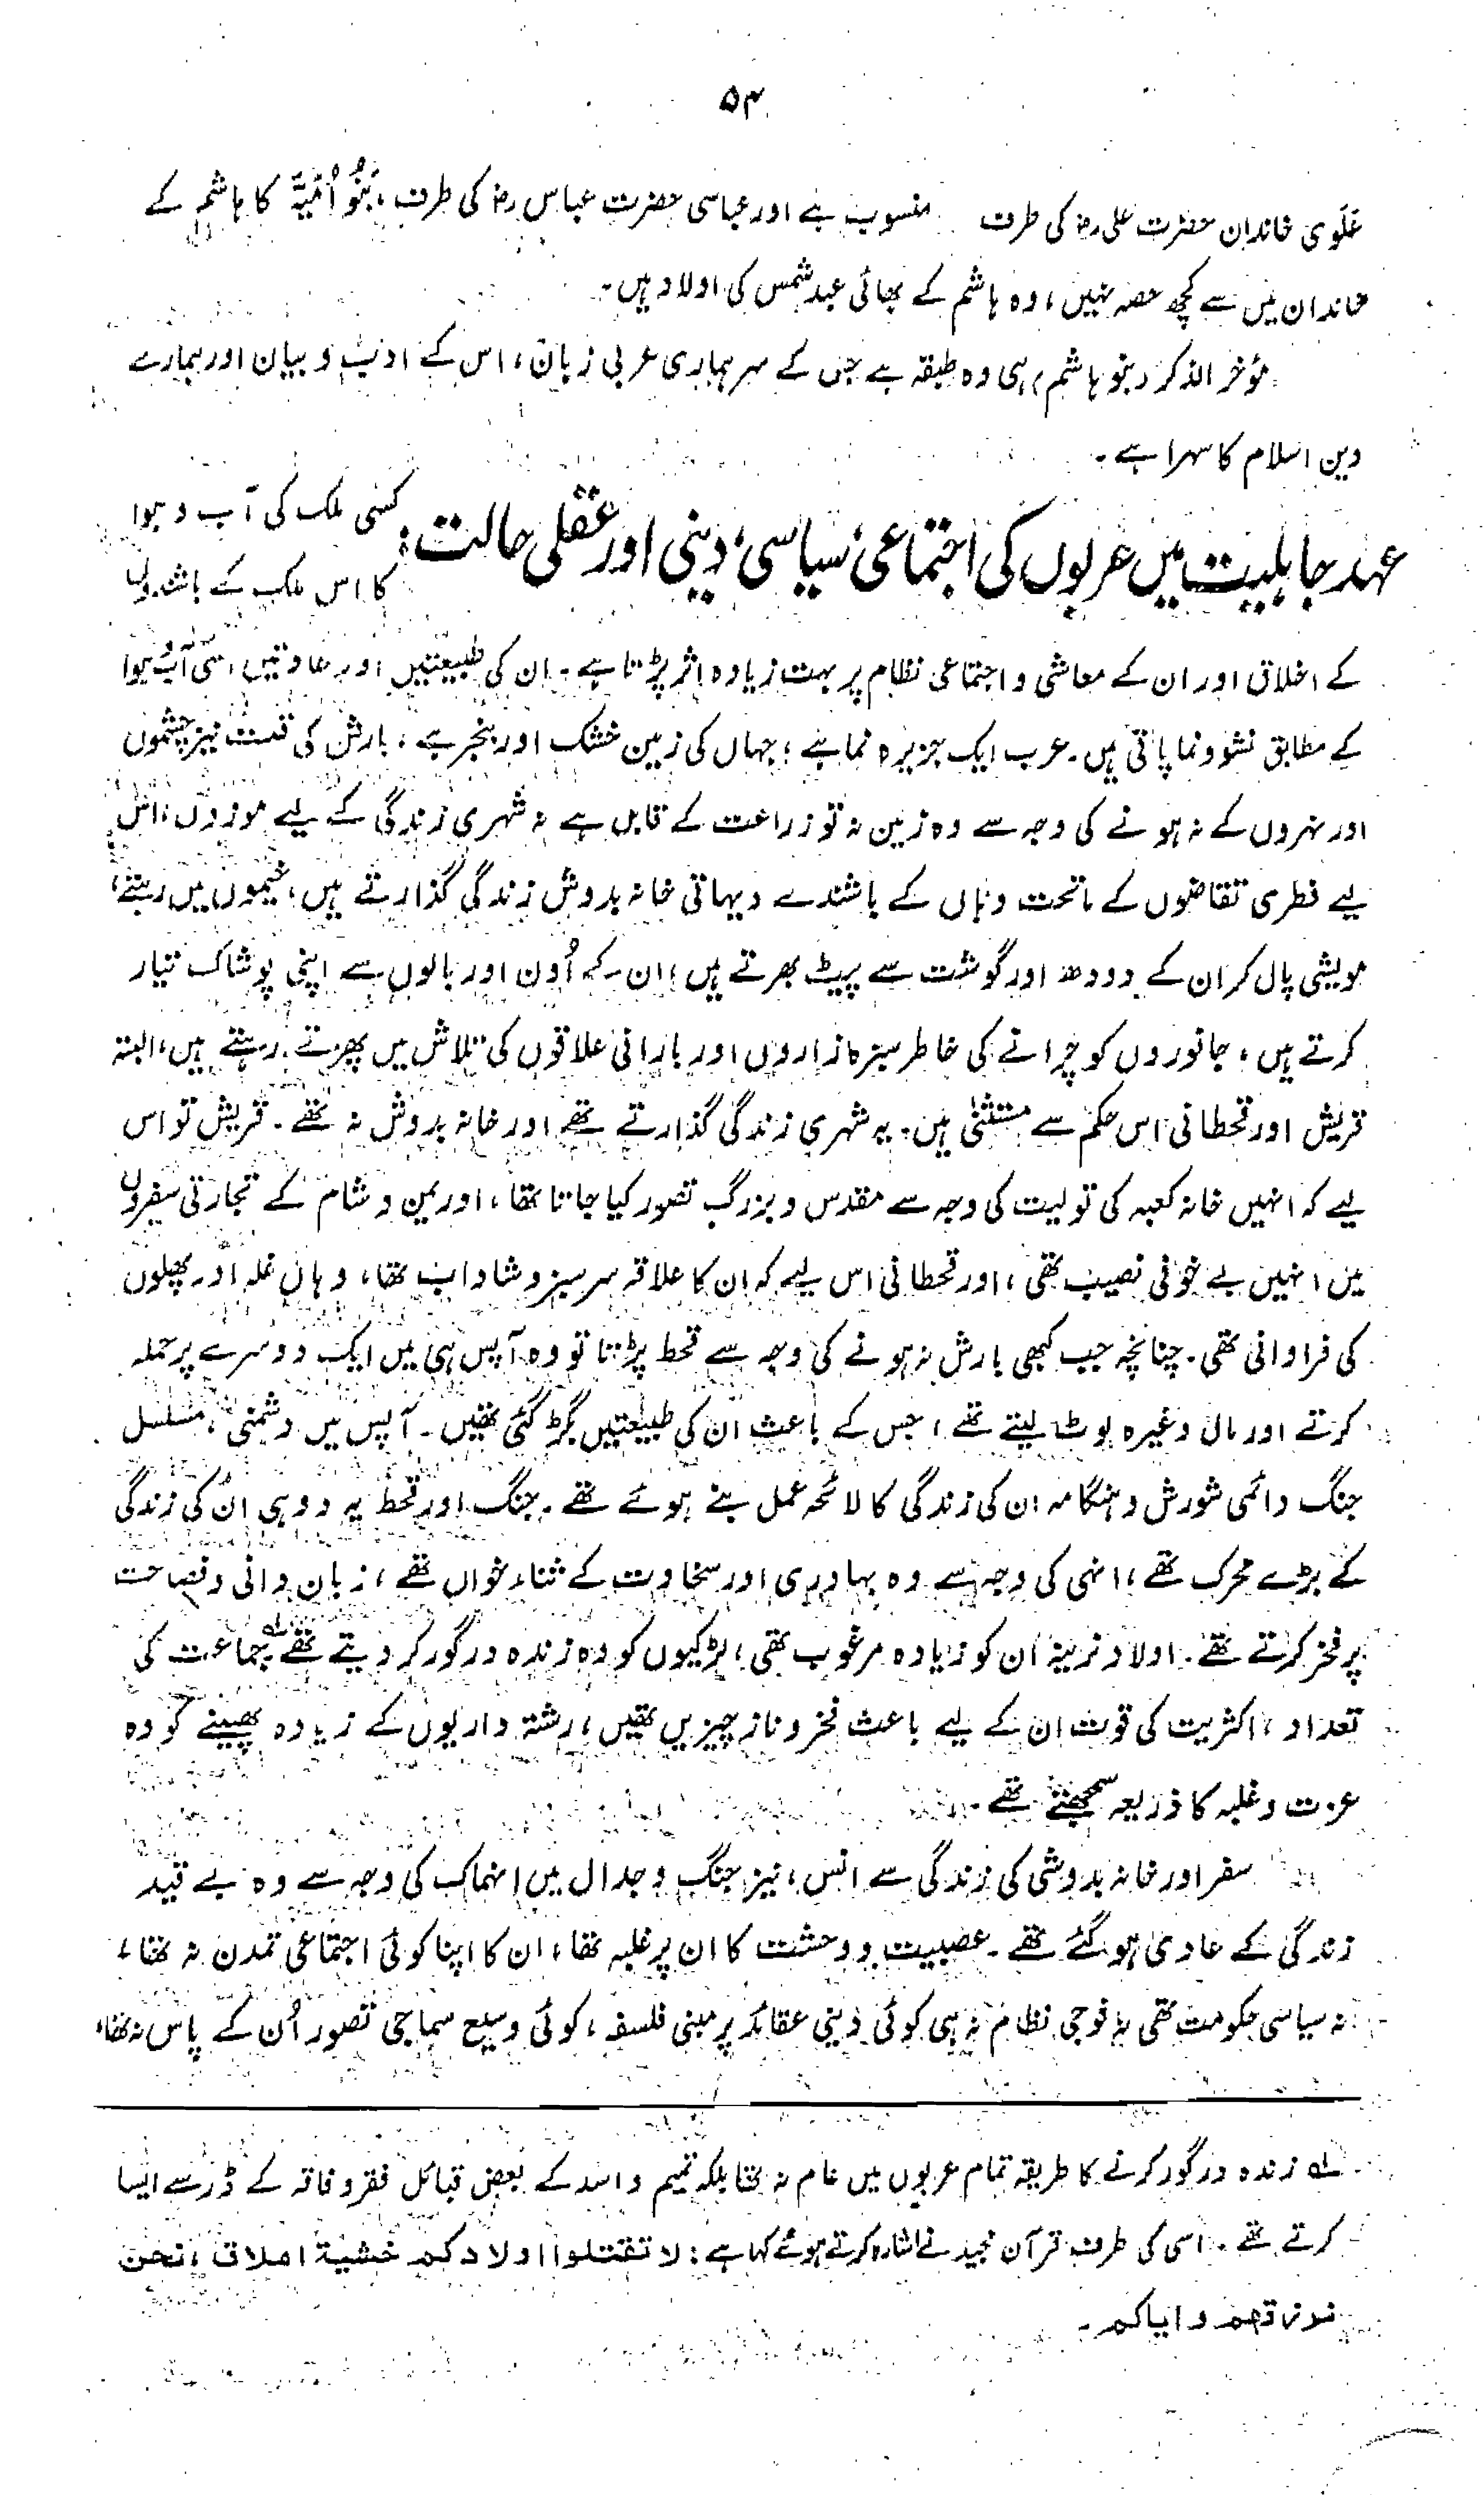 ۵۴
عَلَوی خاندان حضرت علی رض کی طرف منسوب ہے اور عباسی حضرت عباس رض کی طرف، بَنُو اُمَیَّہ کا ہاشم کے
خاندان میں سے کچھ حصہ نہیں، وہ ہاشم کے بھائی عبد شمس کی اولاد ہیں۔
مؤخر الذکر (بنو ہاشم) ہی وہ طبقہ ہے جس کے سر ہماری عربی زبان، اس کے ادب و بیان اور ہمارے
دین اسلام کا سہرا ہے۔
عہد جاہلیت میں عربوں کی اجتماعی، سیاسی، دینی اور عقلی حالت: کسی ملک کی آب و ہوا
کا اس ملک کے باشندوں
کے اخلاق اور ان کے معاشی و اجتماعی نظام پر بہت زیادہ اثر پڑتا ہے۔ ان کی طبیعتیں اور عادتیں اسی آب و ہوا
کے مطابق نشوونما پاتی ہیں۔ عرب ایک جزیرہ نما ہے؛ جہاں کی زمین خشک اور بنجر ہے، بارش کی قلت نیز چشموں
اور نہروں کے نہ ہونے کی وجہ سے وہ زمین نہ تو زراعت کے قابل ہے نہ شہری زندگی کے لیے موزوں، اس
لیے فطری تقاضوں کے ماتحت وہاں کے باشندے دیہاتی خانہ بدوش زندگی گذارتے ہیں، خیموں میں رہتے،
مویشی پال کر ان کے دودھ اور گوشت سے پیٹ بھرتے ہیں، ان کے اُون اور بالوں سے اپنی پوشاک تیار
کرتے ہیں، جانوروں کو چرانے کی خاطر سبزہ زاروں اور بارانی علاقوں کی تلاش میں پھرتے رہتے ہیں، البتہ
قریش اور قحطانی اس حکم سے مستثنیٰ ہیں۔ یہ شہری زندگی گذارتے تھے اور خانہ بدوش نہ تھے۔ قریش تو اس
لیے کہ انہیں خانہ کعبہ کی تولیت کی وجہ سے مقدس و بزرگ تصور کیا جاتا تھا، اور یمن و شام کے تجارتی سفروں
میں انہیں بے خوفی نصیب تھی، اور قحطانی اس لیے کہ ان کا علاقہ سرسبز و شاداب تھا، وہاں غلہ اور پھلوں
کی فراوانی تھی۔ چنانچہ جب کبھی بارش نہ ہونے کی وجہ سے قحط پڑتا تو وہ آپس ہی میں ایک دوسرے پر حملہ
کرتے اور مال وغیرہ لوٹ لیتے تھے، جس کے باعث ان کی طبیعتیں بگڑ گئی تھیں۔ آپس میں دشمنی، مسلسل
جنگ دائمی شورش و ہنگامہ ان کی زندگی کا لائحہ عمل بنے ہوئے تھے۔ جنگ اور قحط یہ دو ہی ان کی زندگی
کے بڑے محرک تھے، انہی کی وجہ سے وہ بہادری اور سخاوت کے ثناء خواں تھے، زبان دانی و فصاحت
پر فخر کرتے تھے۔ اولاد نرینہ ان کو زیادہ مرغوب تھی، لڑکیوں کو وہ زندہ درگور کر دیتے تھے لہ جماعت کی
تعداد، اکثریت کی قوت ان کے لیے باعث فخر و ناز چیزیں تھیں، رشتہ داریوں کے زیادہ پھیلنے کو وہ
عزت و غلبہ کا ذریعہ سمجھتے تھے۔
سفر اور خانہ بدوشی کی زندگی سے انس، نیز جنگ و جدال میں انہماک کی وجہ سے وہ بے قید
زندگی کے عادی ہو گئے تھے۔ عصبیت و وحشت کا ان پر غلبہ تھا، ان کا اپنا کوئی اجتماعی تمدن نہ تھا،
نہ سیاسی حکومت تھی نہ فوجی نظام نہ ہی کوئی دینی عقائد پر مبنی فلسفہ، کوئی وسیع سماجی تصور اُن کے پاس نہ تھا،
لہ زندہ درگور کرنے کا طریقہ تمام عربوں میں عام نہ تھا بلکہ تمیم و اسد کے بعض قبائل فقر و فاقہ کے ڈر سے ایسا
کرتے تھے۔ اسی کی طرف قرآن مجید نے اشارہ کرتے ہوئے کہا ہے: لا تقتلوا اولادکم خشیة املاق، نحن
نرزقھم و ایاکم۔